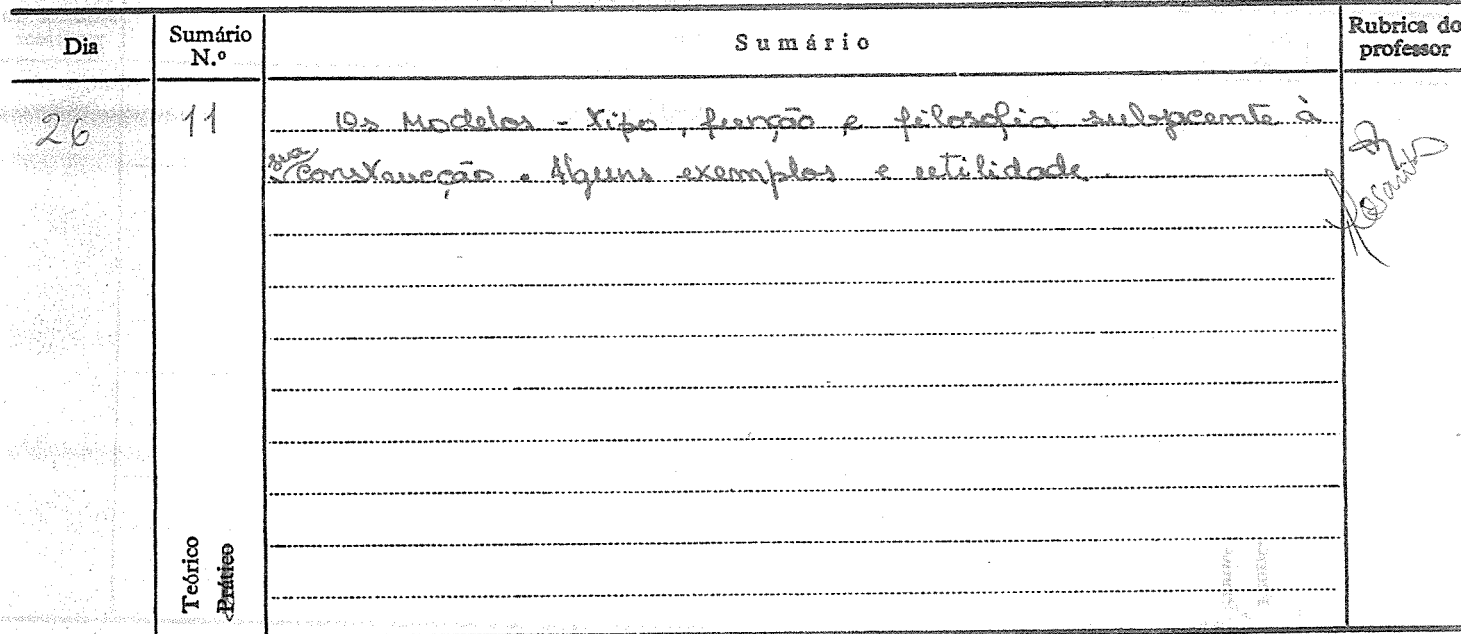 Dia
Sumário N.º
Sumário
Rubrica do professor
26
11
Os Modelos - Tipo, função e filosofia subjacente à
sua construcção. Alguns exemplos e utilidade.
Teórico
Prático